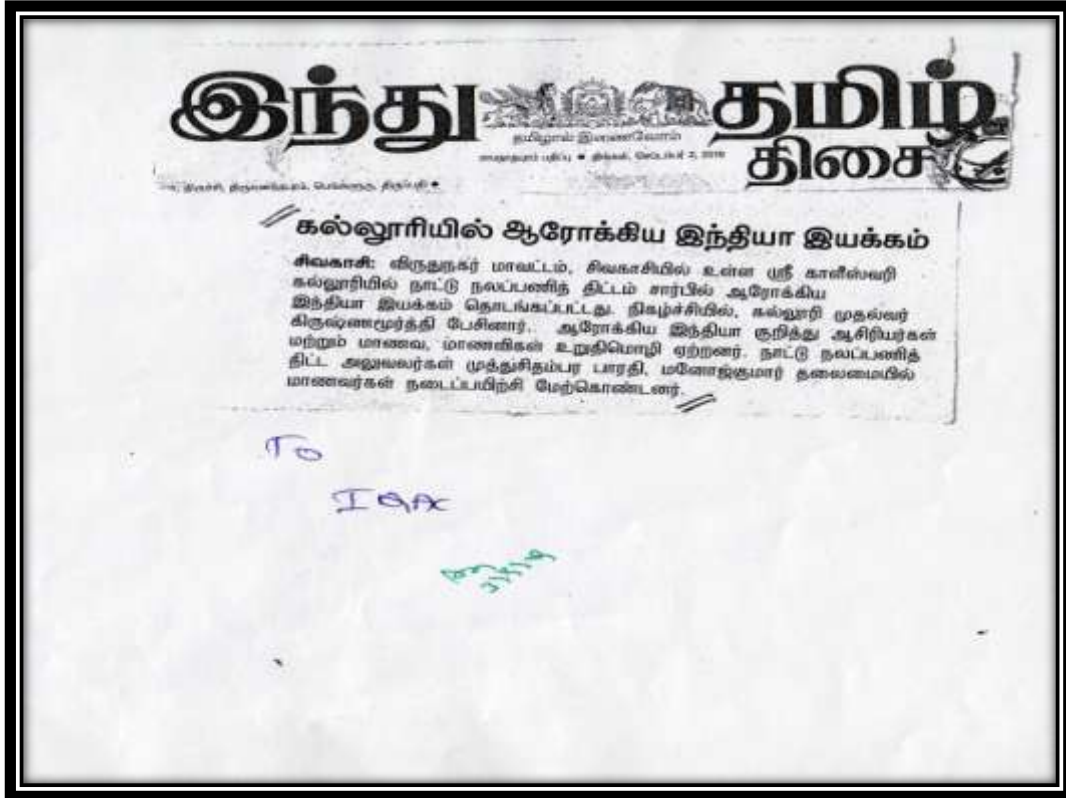 இந்து தமிழ்
தமிழால் இணைவோம்
திசை
ராமநாதபுரம் பதிப்பு ● திங்கள், செப்டம்பர் 2, 2019
திருச்சி, திருவனந்தபுரம், பெங்களூரு, திருப்பதி ●
கல்லூரியில் ஆரோக்கிய இந்தியா இயக்கம்
சிவகாசி: விருதுநகர் மாவட்டம், சிவகாசியில் உள்ள ஸ்ரீ காளீஸ்வரி
கல்லூரியில் நாட்டு நலப்பணித் திட்டம் சார்பில் ஆரோக்கிய
இந்தியா இயக்கம் தொடங்கப்பட்டது. நிகழ்ச்சியில், கல்லூரி முதல்வர்
கிருஷ்ணமூர்த்தி பேசினார். ஆரோக்கிய இந்தியா குறித்து ஆசிரியர்கள்
மற்றும் மாணவ, மாணவிகள் உறுதிமொழி ஏற்றனர். நாட்டு நலப்பணித்
திட்ட அலுவலர்கள் முத்துசிதம்பர பாரதி, மனோஜ்குமார் தலைமையில்
மாணவர்கள் நடைப்பயிற்சி மேற்கொண்டனர்.
To
IQAC